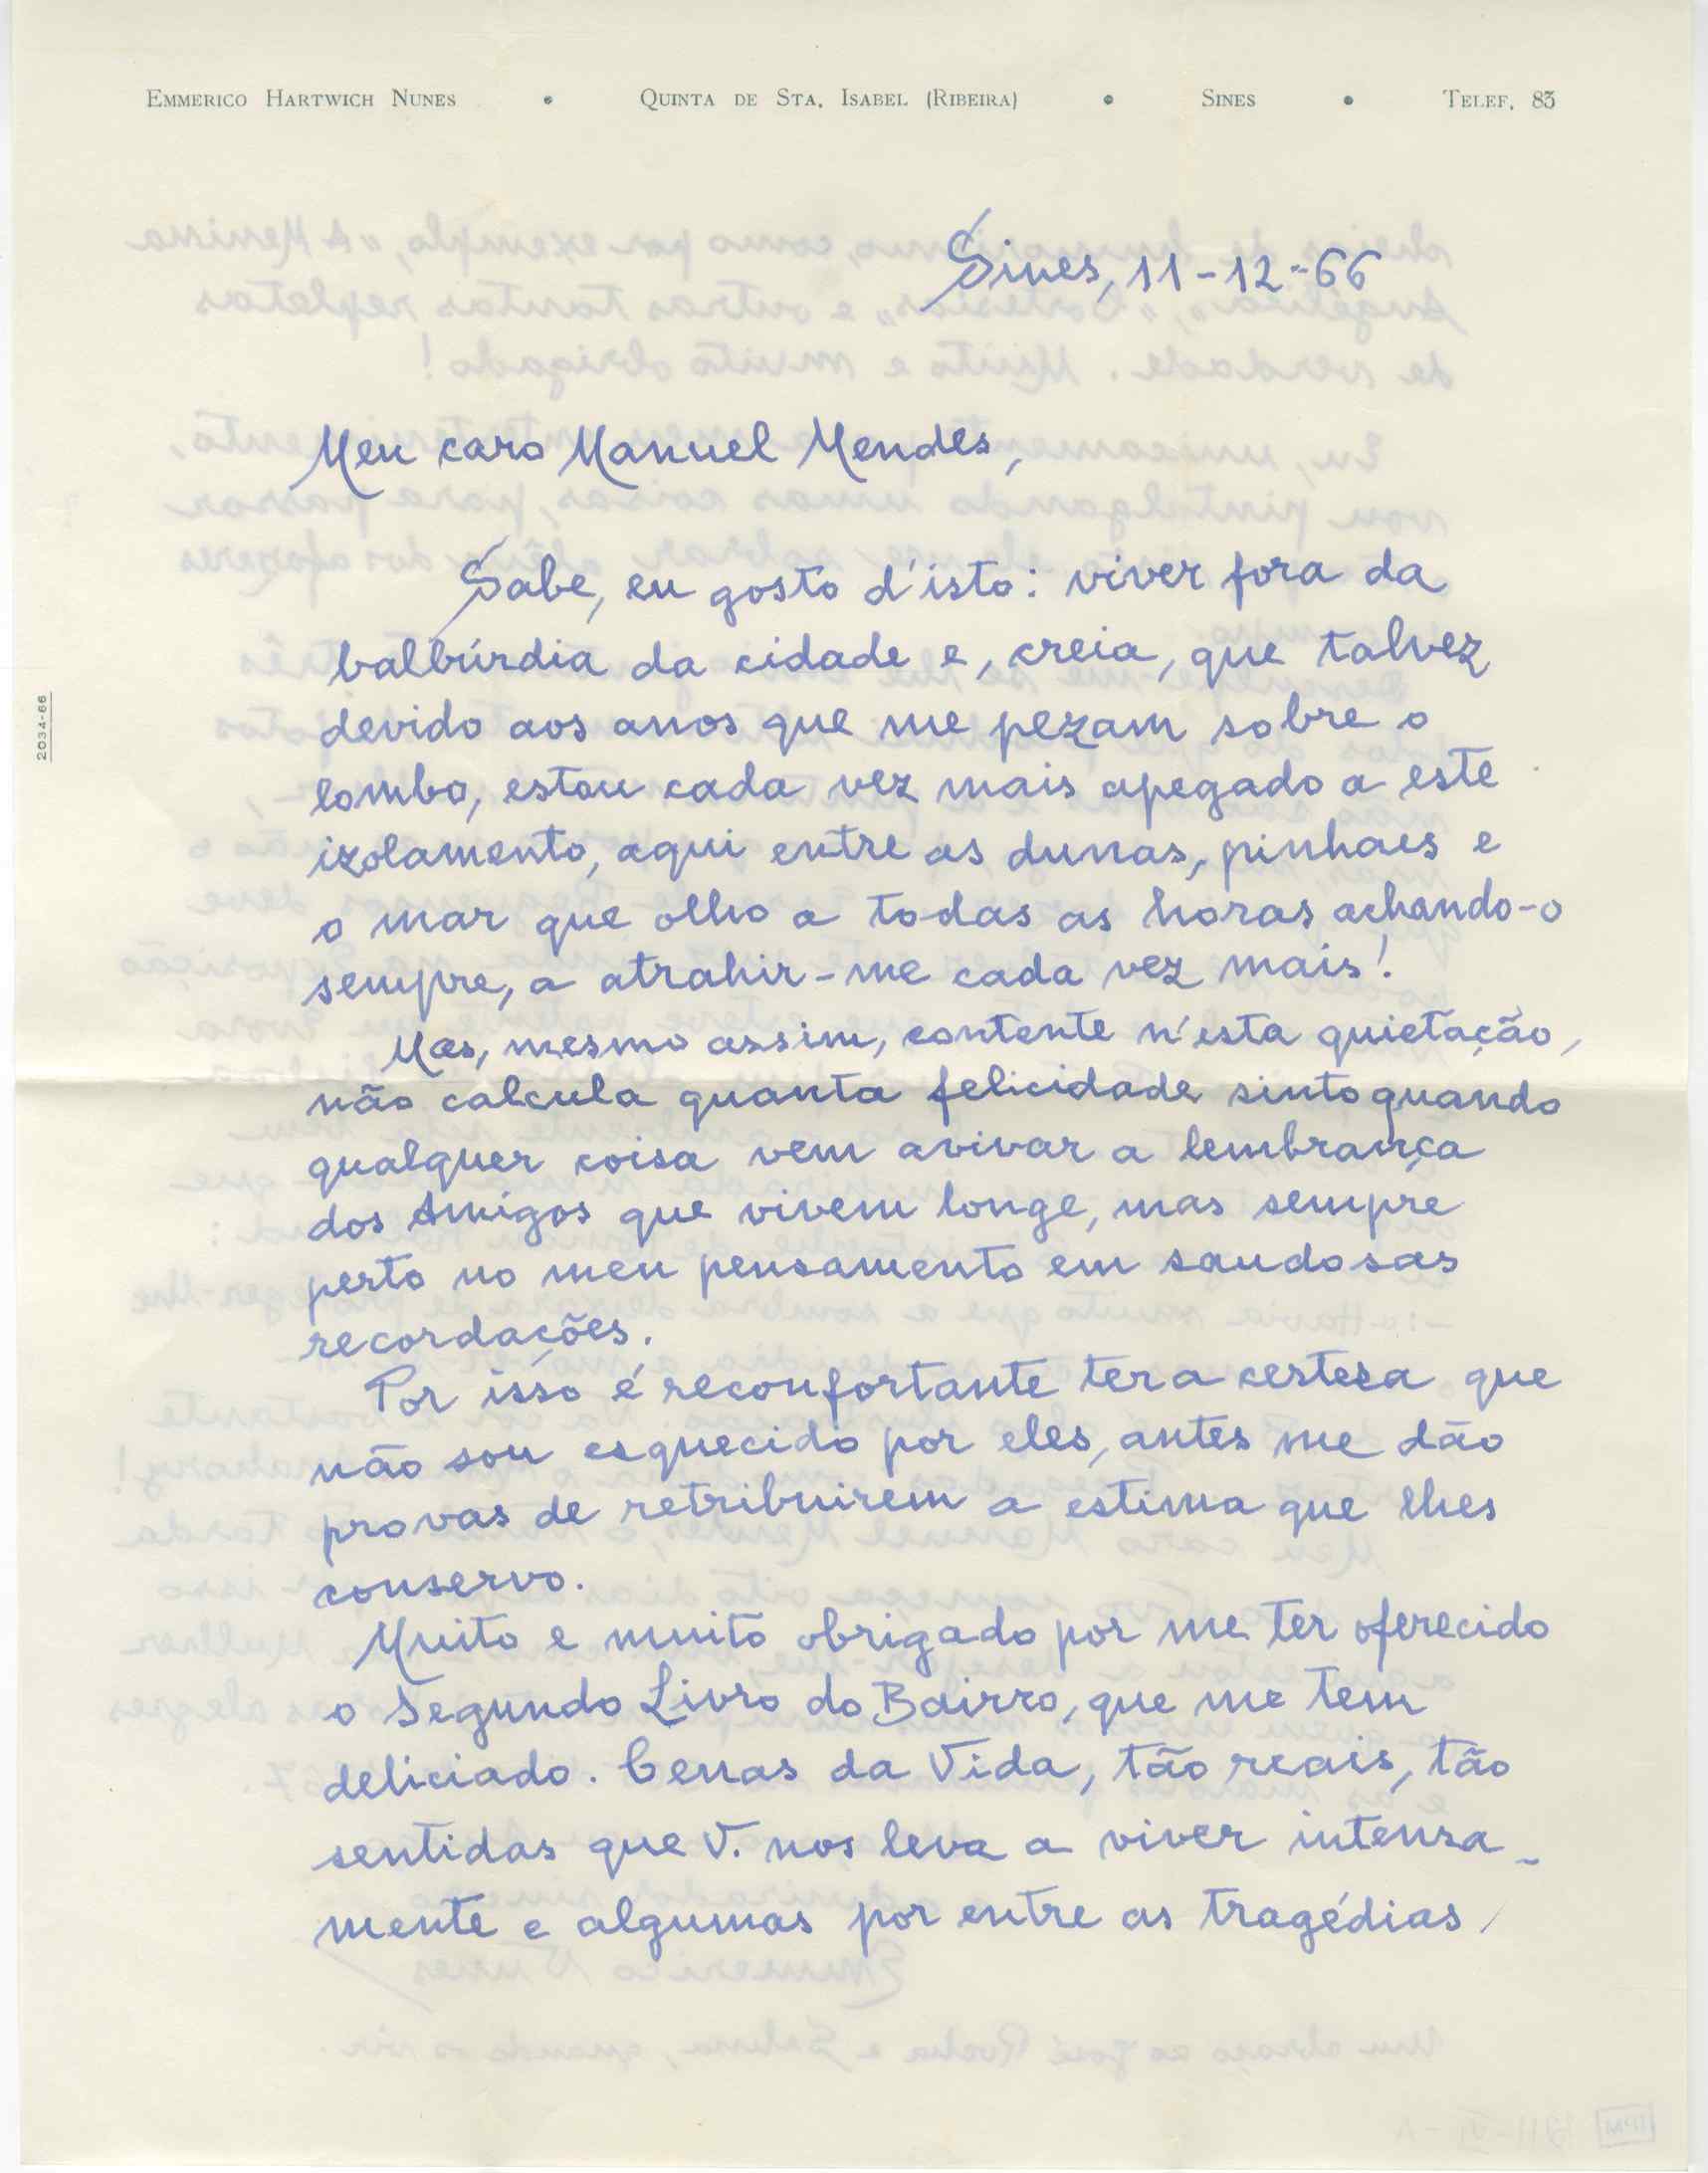 EMMERICO HARTWICH NUNES • QUINTA DE STA. ISABEL (RIBEIRA) • SINES • TELEF. 83
Sines, 11-12-66
Meu caro Manuel Mendes,
Sabe, eu gosto d'isto: viver fora da
balbúrdia da cidade e, creia, que talvez
devido aos anos que me pezam sobre o
lombo, estou cada vez mais apegado a este
izolamento, aqui entre as dunas, pinhaes e
o mar que olho a todas as horas achando-o
sempre, a atrahir-me cada vez mais!
Mas, mesmo assim, contente n'esta quietação,
não calcula quanta felicidade sinto quando
qualquer coisa vem avivar a lembrança
dos Amigos que vivem longe, mas sempre
perto no meu pensamento em saudosas
recordações.
Por isso é reconfortante ter a certeza que
não sou esquecido por eles, antes me dão
provas de retribuirem a estima que lhes
conservo.
Muito e muito obrigado por me ter oferecido
o Segundo Livro do Bairro, que me tem
deliciado. Cenas da Vida, tão reais, tão
sentidas que V. nos leva a viver intensa-
mente e algumas por entre as tragédias,
2034-66